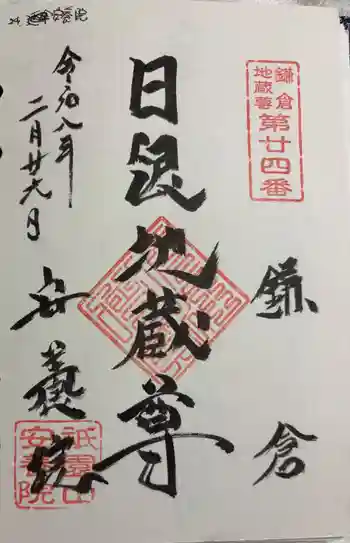 鎌倉
地蔵尊
第廿四番
鎌倉
日限地蔵尊
令和八年
二月廿六日
安養院
祇園山
安養院
24.
安養院